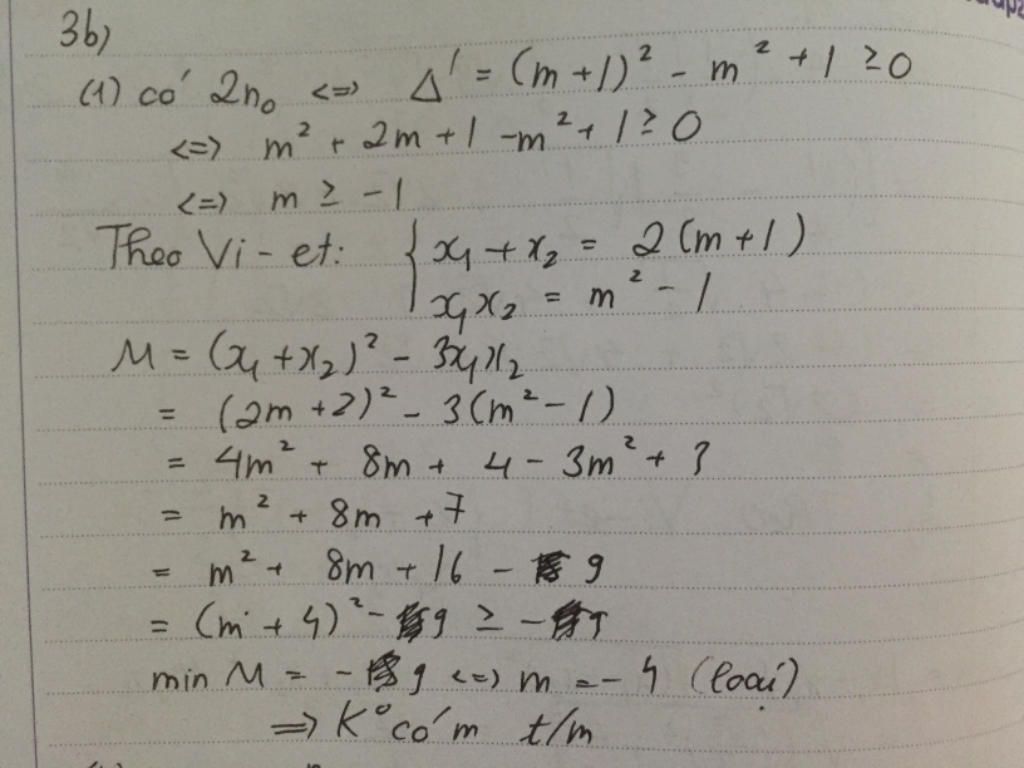 3b)
(1) có 2n₀ <=> Δ' = (m+1)² - m² + 1 ≥ 0
<=> m² + 2m + 1 - m² + 1 ≥ 0
<=> m ≥ -1
Theo Vi-et: { x₁ + x₂ = 2(m+1)
x₁x₂ = m² - 1
M = (x₁ + x₂)² - 3x₁x₂
= (2m + 2)² - 3(m² - 1)
= 4m² + 8m + 4 - 3m² + 3
= m² + 8m + 7
= m² + 8m + 16 - 9
= (m + 4)² - 9 ≥ -9
min M = -9 <=> m = -4 (loại)
=> K° có m t/m